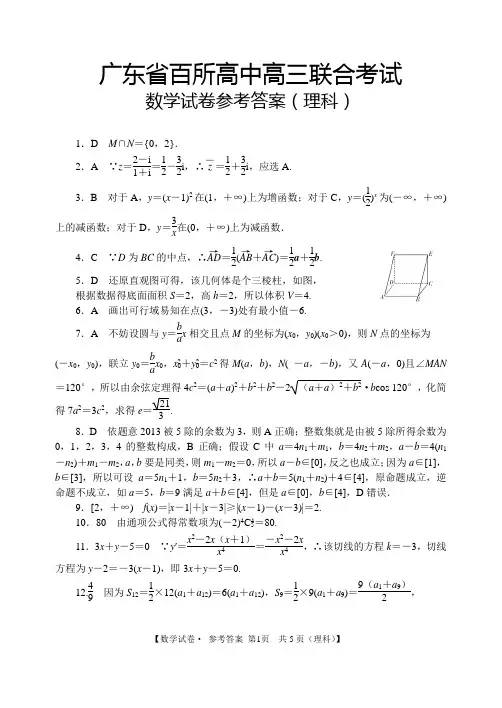 广东省百所高中高三联合考试
数学试卷参考答案（理科）
1．D　M∩N＝{0，2}．
2．A　∵z＝(2－i)/(1＋i)＝1/2－3/2i，∴z̄＝1/2＋3/2i，应选 A.
3．B　对于 A，y＝(x－1)²在(1，＋∞)上为增函数；对于 C，y＝(1/2)ˣ为(－∞，＋∞)
上的减函数；对于 D，y＝3/x在(0，＋∞)上为减函数．
4．C　∵D 为 BC 的中点，∴AD→＝1/2(AB→＋AC→)＝1/2a＋1/2b.
5．D　还原直观图可得，该几何体是个三棱柱，如图，
根据数据得底面面积 S＝2，高 h＝2，所以体积 V＝4.
F E D C A B
6．A　画出可行域易知在点(3，－3)处有最小值－6.
7．A　不妨设圆与 y＝b/a x 相交且点 M 的坐标为(x₀，y₀)(x₀＞0)，则 N 点的坐标为
(－x₀，y₀)，联立 y₀＝b/a x₀，x₀²＋y₀²＝c²得 M(a，b)，N(－a，－b)，又 A(－a，0)且∠MAN
＝120°，所以由余弦定理得 4c²＝(a＋a)²＋b²＋b²－2√((a＋a)²＋b²)·bcos 120°，化简
得 7a²＝3c²，求得 e＝√21/3.
8．D　依题意 2013 被 5 除的余数为 3，则 A 正确；整数集就是由被 5 除所得余数为
0，1，2，3，4 的整数构成，B 正确；假设 C 中 a＝4n₁＋m₁，b＝4n₂＋m₂，a－b＝4(n₁
－n₂)＋m₁－m₂，a，b 要是同类，则 m₁－m₂＝0，所以 a－b∈[0]，反之也成立；因为 a∈[1]，
b∈[3]，所以可设 a＝5n₁＋1，b＝5n₂＋3，∴a＋b＝5(n₁＋n₂)＋4∈[4]，原命题成立，逆
命题不成立，如 a＝5，b＝9 满足 a＋b∈[4]，但是 a∈[0]，b∈[4]，D 错误．
9．[2，＋∞)　f(x)＝|x－1|＋|x－3|≥|(x－1)－(x－3)|＝2.
10．80　由通项公式得常数项为(－2)⁴C₅⁴＝80.
11．3x＋y－5＝0　∵y′＝(x²－2x（x＋1）)/x⁴＝(－x²－2x)/x⁴，∴该切线的方程 k＝－3，切线
方程为 y－2＝－3(x－1)，即 3x＋y－5＝0.
12.4/9　因为 S₁₂＝1/2×12(a₁＋a₁₂)＝6(a₁＋a₁₂)，S₉＝1/2×9(a₁＋a₉)＝9（a₁＋a₉）/2，
【数学试卷· 参考答案 第1页 共 5 页（理科）】